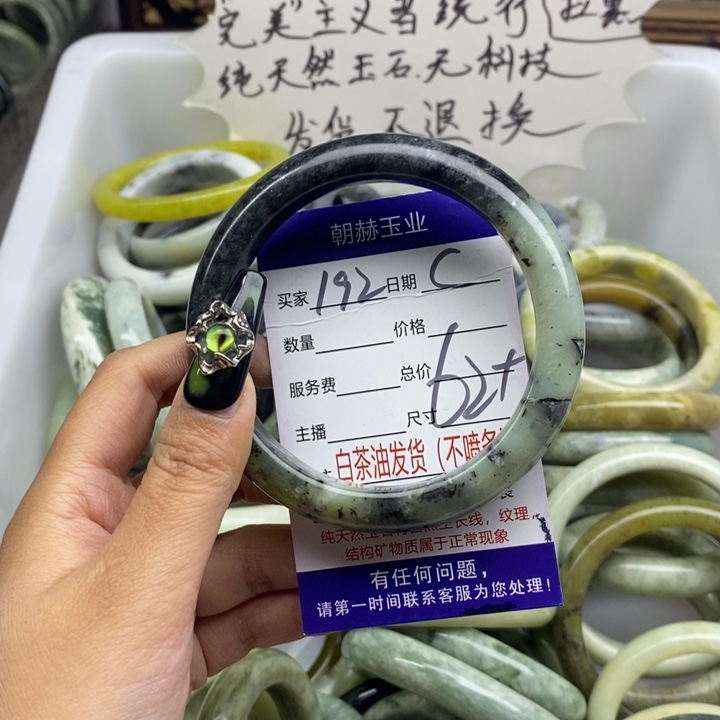 "完美"主义者绕行
纯天然玉石.无科技
发货不退换
朝赫玉业
买家 192 日期 C
数量 价格
服务费 总价
主播 尺寸 62+
白茶油发货(不喷
生长线,纹理,
结构矿物质属于正常现象
有任何问题,
请第一时间联系客服为您处理!